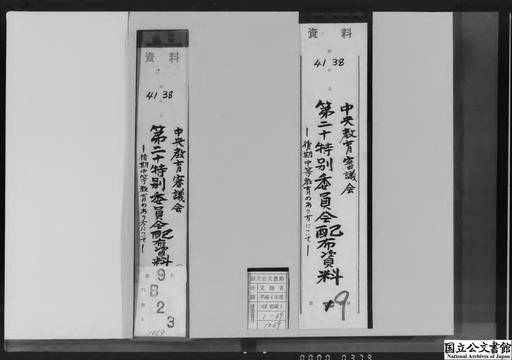 資料
41 38
中央教育審議会
第二十特別委員会配布資料
―後期中等教育のあり方について―
9
資料
41 38
中央教育審議会
第二十特別委員会配布資料
―後期中等教育のあり方について―
9
B
2
3
1069
国立公文書館
分類
文部省
平成4年度
1-69
1069
0000 0339
国立公文書館
National Archives of Japan